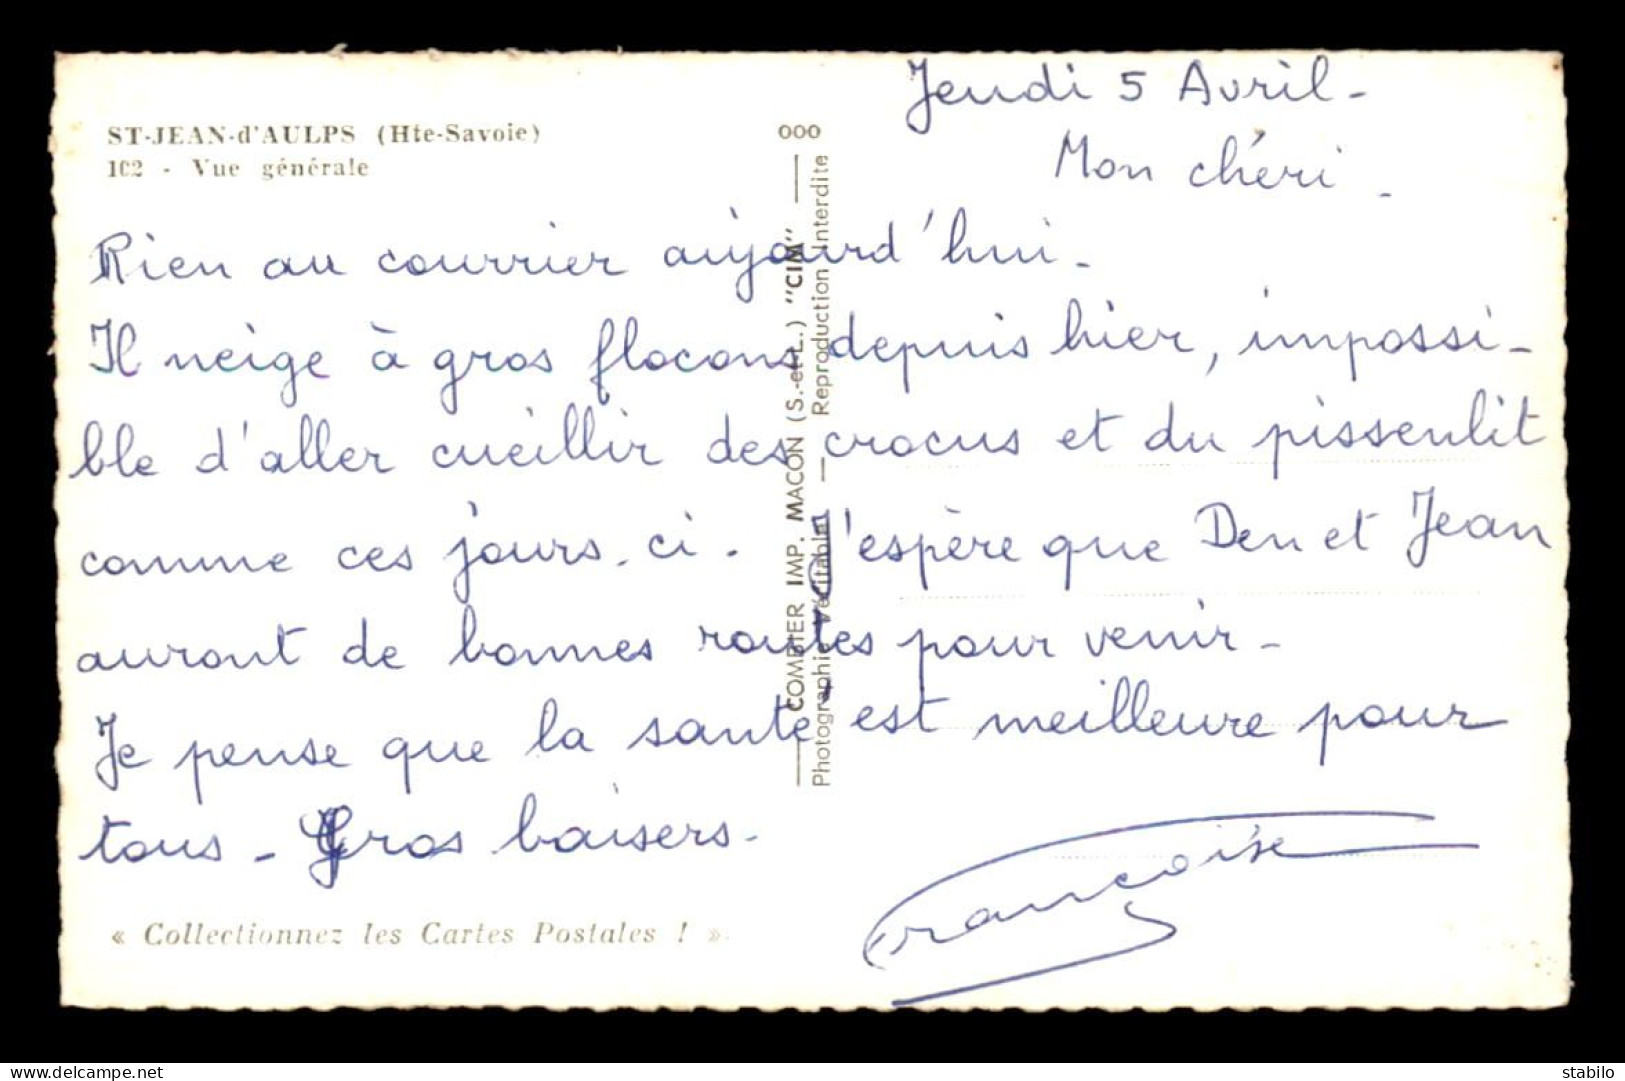 ST-JEAN-d'AULPS (Hte-Savoie)
102 - Vue générale
000
COMBIER IMP. MACON (S.-et-L.) "CIM"
Photographie Véritable — Reproduction Interdite
Jeudi 5 Avril -
Mon chéri -
Rien au courrier aujourd'hui -
Il neige à gros flocons depuis hier, impossi-
ble d'aller cueillir des crocus et du pissenlit
comme ces jours-ci. J'espère que Den et Jean
auront de bonnes routes pour venir -
Je pense que la santé est meilleure pour
tous - Gros baisers -
Françoise
« Collectionnez les Cartes Postales ! »
delcampe.net
stabilo